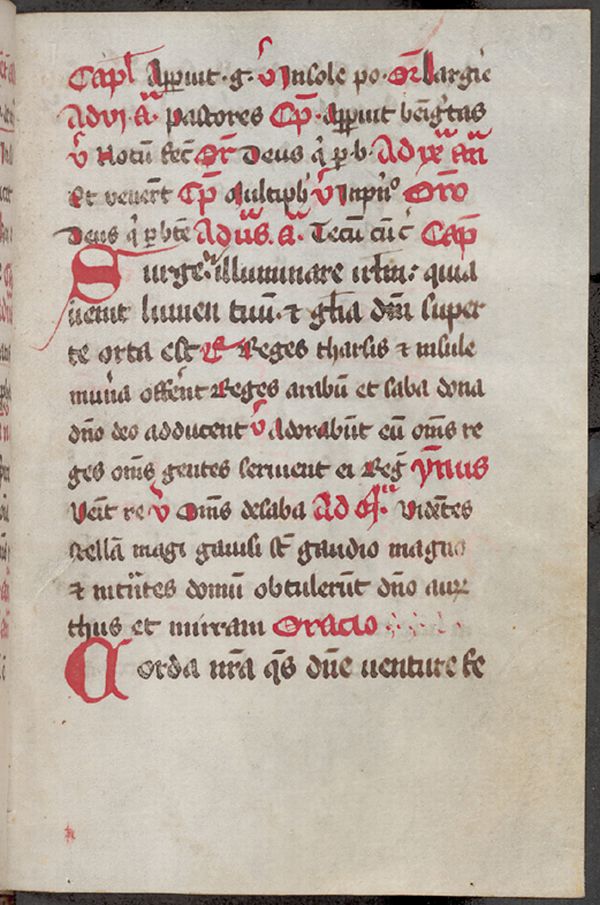 Capl Apparuit · g · V In sole po · Or Largire
Ad vj · a · pastores Cp · apparuit benigtas
V Notu fec Or Deus q p b · Ad ix an
Et venert Cp Multiph V In pn Oro
Deus q p bte Ad vs . a . Tecu Cap
Surge illuminare irlm · quia
uenit lumen tuu · ⁊ gl̄ia dn̄i super
te orta est R Reges tharsis ⁊ insule
mun̄a offer̄nt Reges arabū et saba dona
dn̄o deo adducent V Adorabūt eū om̄s re
ges om̄s gentes seruient ei Reḡ ymnus
Ueīt re V Om̄s de saba Ad Vidētes
stellā magi gauisi st̄ gaudio magno
⁊ int̄ntes domū obtulerūt dn̄o auꝝ
thus et mirram Oracio
Corda nr̄a qs̄ dn̄e uenture fe